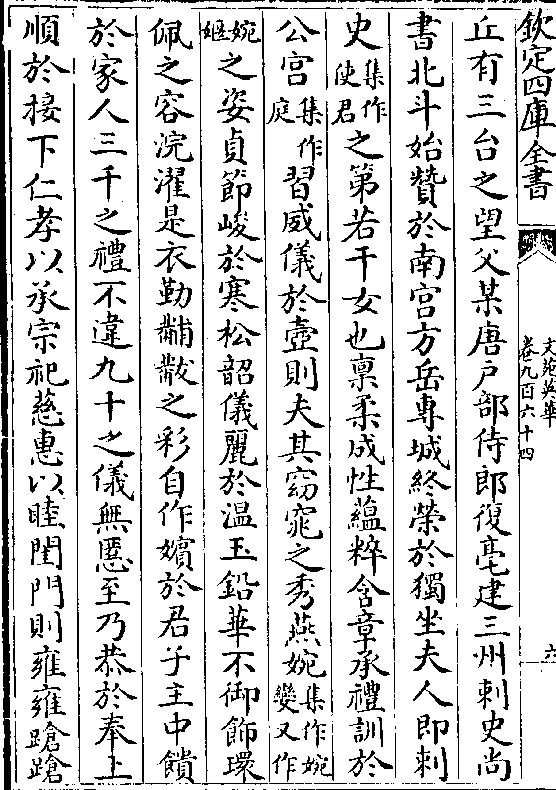 欽定四庫全書
文苑英華
卷九百六十四
六
丘有三台之望父某唐户部侍郎復亳建三州刺史尚
書北斗始贊於南宫方岳專城終榮於獨坐夫人即刺
史集作使君之第若干女也禀柔成性蘊粹含章承禮訓於
公宫集作庭習威儀於壼則夫其窈窕之秀燕婉集作婉孌又作
婉嫕之姿貞節峻於寒松韶儀麗於温玉鉛華不御飾環
佩之容浣濯是衣勤黼黻之彩自作嬪於君子主中饋
於家人三千之禮不違九十之儀無慝至乃恭於奉上
順於接下仁孝以承宗祀慈惠以睦閨門則雍雍蹌蹌